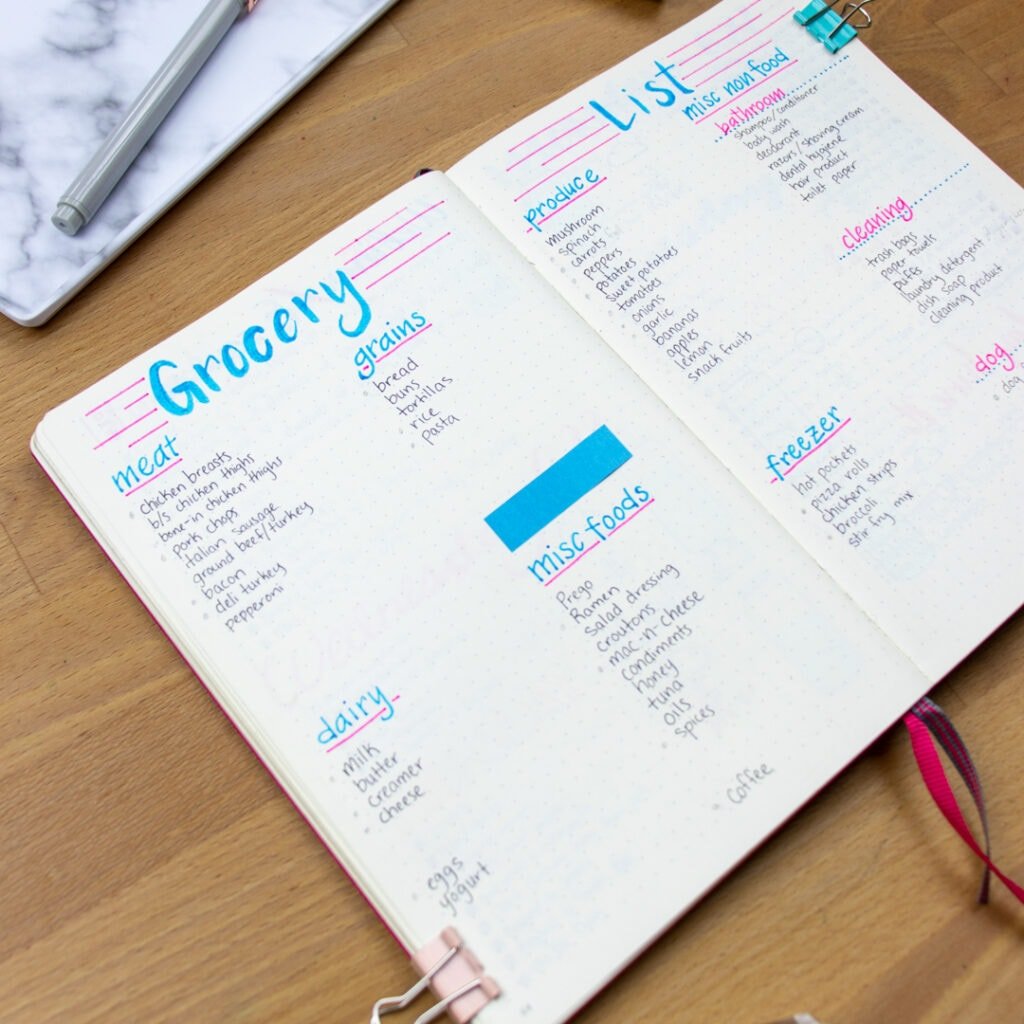 Grocery
meat
chicken breasts
b/s chicken thighs
bone-in chicken thighs
pork chops
italian sausage
ground beef/turkey
bacon
deli turkey
pepperoni
dairy
milk
butter
creamer
cheese
eggs
yogurt
grains
bread
buns
tortillas
rice
pasta
misc foods
Prego
Ramen
salad dressing
croutons
mac-n-cheese
condiments
honey
tuna
oils
spices
coffee
List
produce
mushroom
spinach
carrots
peppers
potatoes
sweet potatoes
tomatoes
onions
garlic
bananas
apples
lemon
snack fruits
freezer
hot pockets
pizza rolls
chicken strips
broccoli
stir fry mix
misc non food
bathroom
shampoo/conditioner
body wash
deodorant
razors/shaving cream
dental hygiene
hair product
toilet paper
cleaning
trash bags
paper towels
puffs
laundry detergent
dish soap
cleaning product
dog
dog